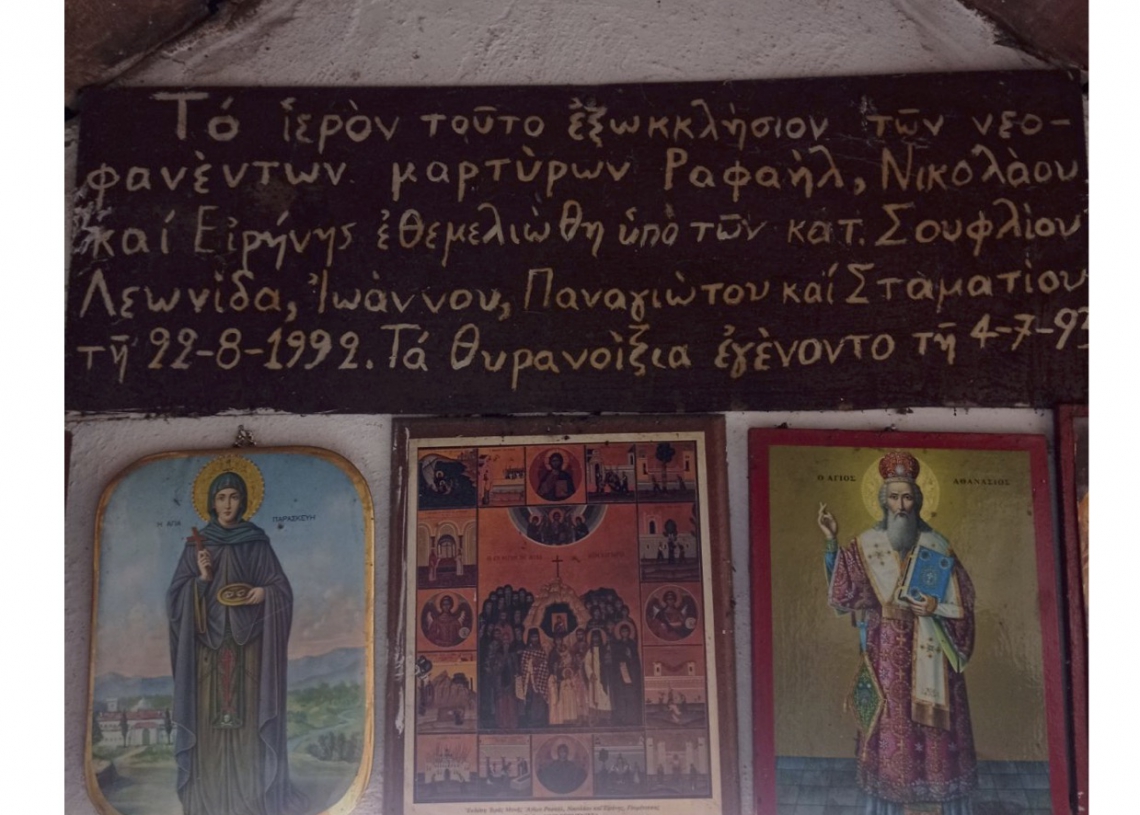 Τό ἱερὸν τοῦτο ἐξωκκλήσιον τῶν νεο-
φανὲντων μαρτὺρων Ραφαὴλ, Νικολὰου
καί Εἰρήνης ἐθεμελιὼθη ὑπὸ τῶν κατ. Σουφλίου
Λεωνίδα, Ἰωὰννου, Παναγιὼτου καί Σταματίου
τῇ 22-8-1992. Τά θυρανοὶξια ἐγὲνοντο τῇ 4-7-93
Η ΑΓΙΑ ΠΑΡΑΣΚΕΥΗ
Ο ΑΓΙΟΣ ΑΘΑΝΑΣΙΟΣ